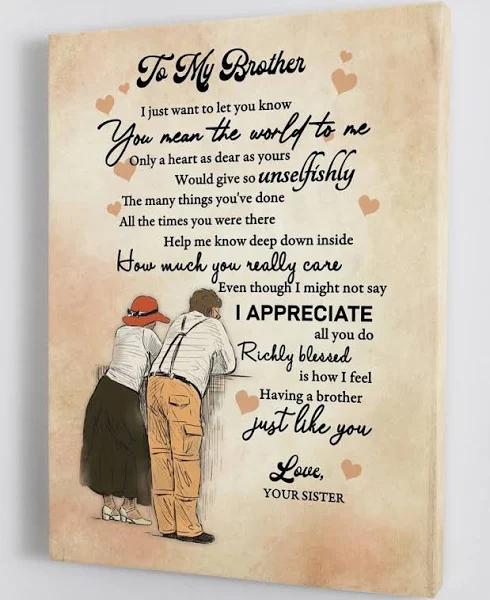 To My Brother
I just want to let you know
You mean the world to me
Only a heart as dear as yours
Would give so unselfishly
The many things you've done
All the times you were there
Help me know deep down inside
How much you really care
Even though I might not say
I APPRECIATE
all you do
Richly blessed
is how I feel
Having a brother
just like you
Love,
YOUR SISTER